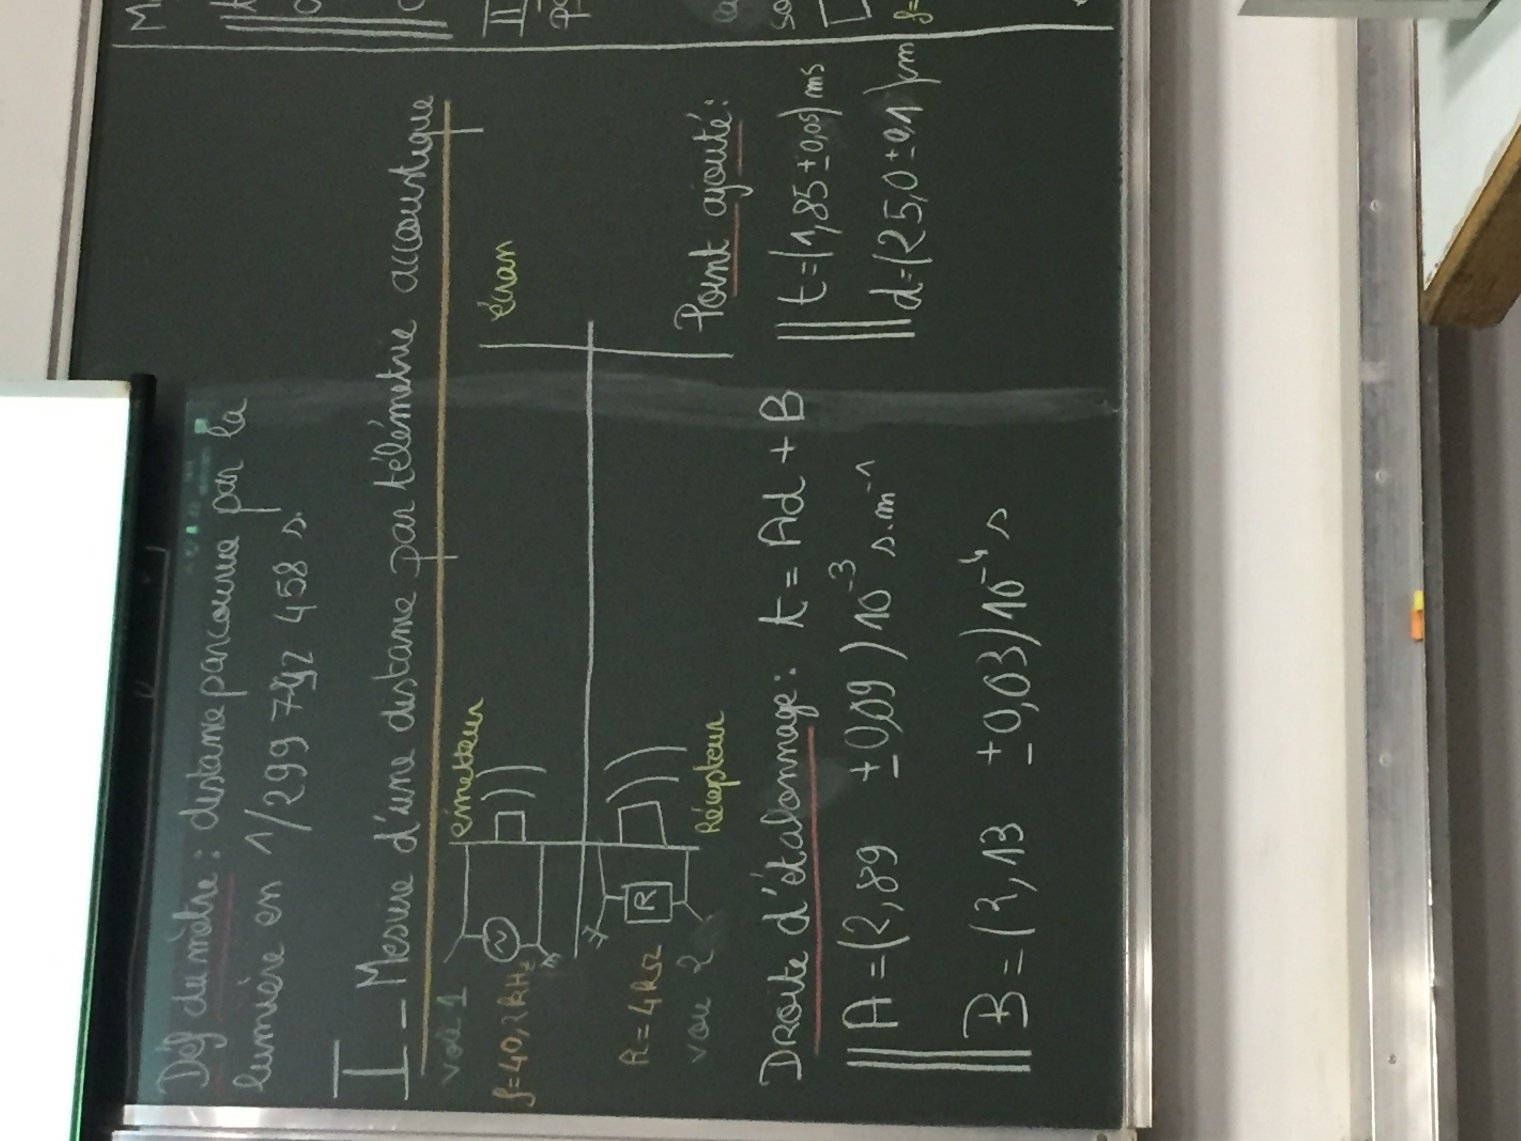 Déf du mètre : distance parcourue par la
lumière en 1/299 792 458 s.
I - Mesure d'une distance par télémétrie accoustique
voie 1
émetteur
écran
f = 40,2 kHz
R
R = 4 kΩ
voie 2
Récepteur
Droite d'étalonnage : t = Ad + B
A = (2,89 ± 0,09) 10⁻³ s.m⁻¹
B = (2,13 ± 0,03) 10⁻⁴ s
Point ajouté :
t = (1,85 ± 0,05) ms
d = (25,0 ± 0,1) cm
II